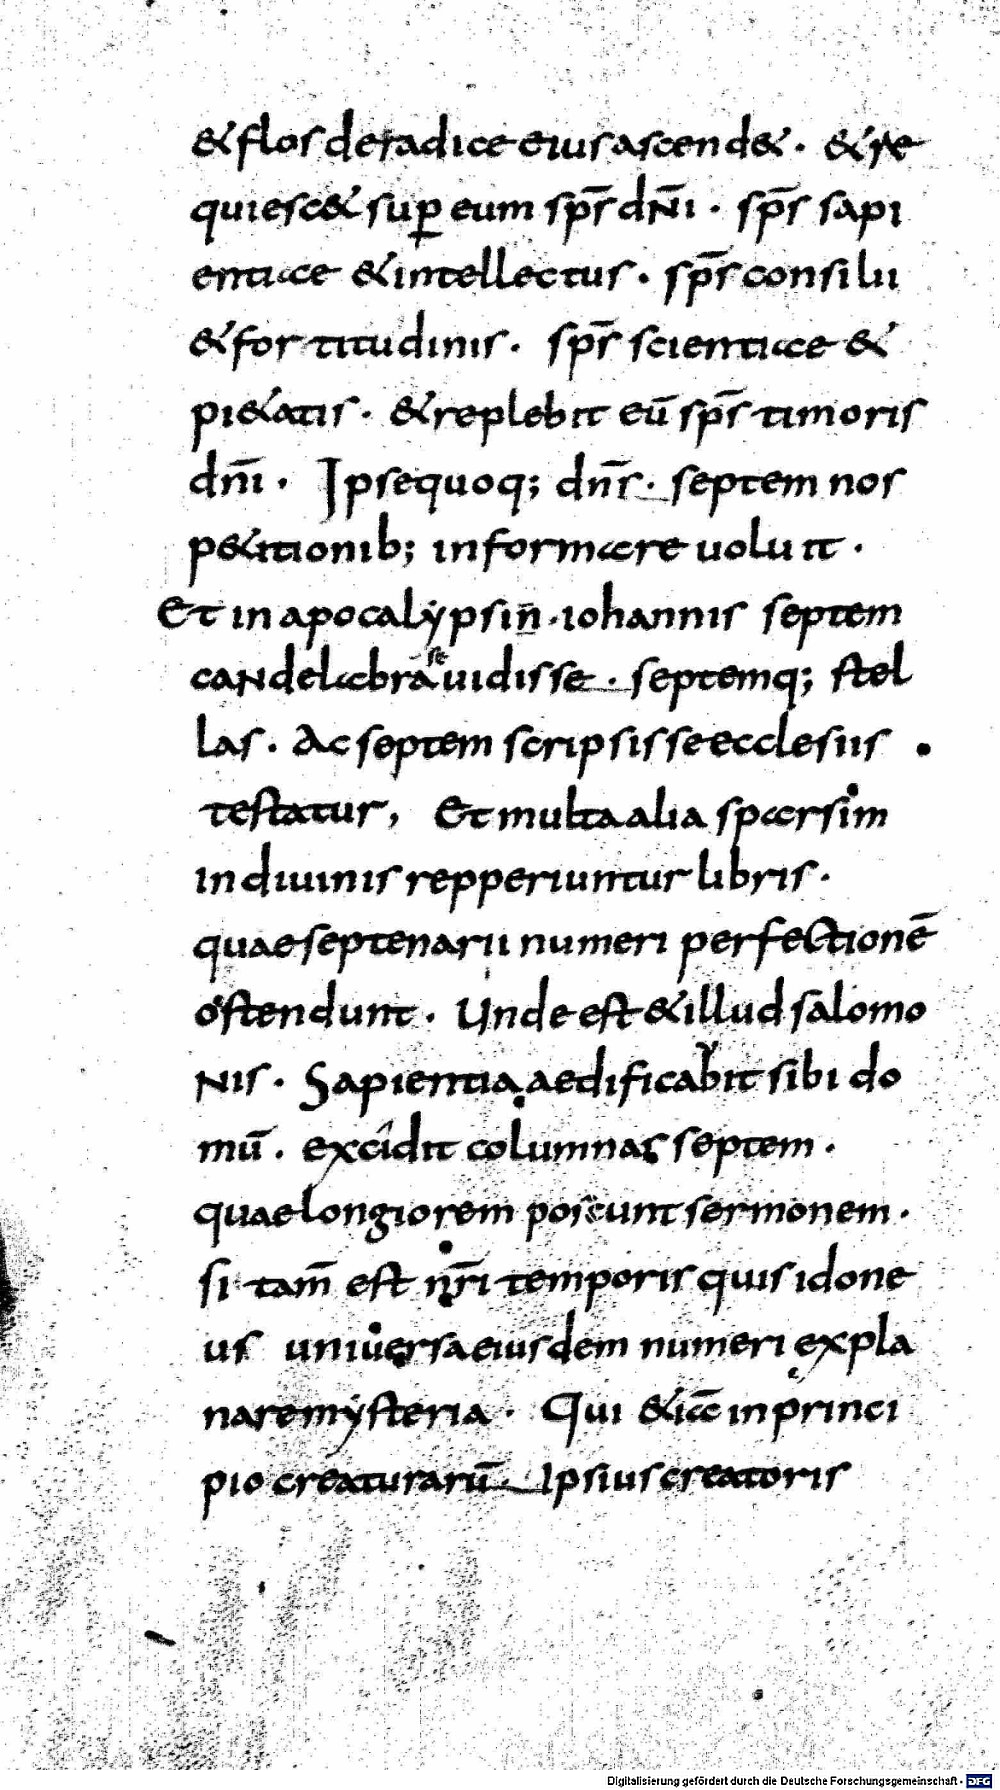 & flos de radice eius ascend&. & re
quiesc& sup̱ eum sp̄s dn̄i. sp̄s sapi
entiae & intellectus. sp̄s consilii
& fortitudinis. sp̄s scientiae &
pi&atis. & replebit eū sp̄s timoris
dn̄i. Ipse quoq; dn̄s. septem nos
p&itionib; informare uoluit.
Et in apocalẏpsin. iohannis septem
candelabra se uidisse. septemq; stel
las. Ac septem scripsisse ecclesiis
testatur, Et multa alia sparsim
in diuinis repperiuntur libris.
quae septenarii numeri perfectionē
ostendunt. Unde est & illud salomo
nis. Sapientia aedificabit sibi do
mū. excidit columnas septem.
quae longiorem poscunt sermonem.
si tam̄ est nr̄i temporis quis idone
us uniuersa eiusdem numeri expla
nare mẏsteria. Qui &iā in princi
pio creaturarū. Ipsius creatoris
Digitalisierung gefördert durch die Deutsche Forschungsgemeinschaft - DFG